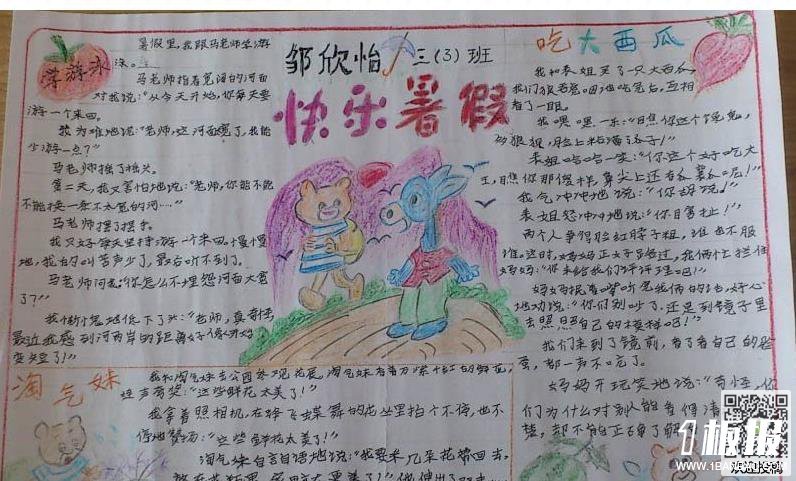 邹欣怡 三(3)班
快乐暑假
学游泳
暑假里,我跟马老师学游
泳。
马老师指着宽阔的河面
对我说:“从今天开始,你每天要
游一个来回。
我为难地说:“老师,这河面宽了,我能
少游一点?”
马老师摇了摇头。
第二天,我又害怕地说:“老师,你能不能
不能换一条不太宽的河……”
马老师摆了摆手。
我只好每天坚持游一个来回,慢慢
地,我的叫苦声少了,最后听不到了。
马老师问我:“你怎么不埋怨河面太宽
了?”
我惭愧地低下了头:“老师,真奇怪
最近我感到河两岸的距离好像开始
变短了!”
吃大西瓜
我和表姐买了一只大西瓜
我们狼吞虎咽地吃完后,互相
看了一眼。
我嘿嘿一乐:“瞧你这个馋鬼,
脸上粘满了
表姐哈哈一笑:“你这个好吃大
王,瞧你那傻样,鼻尖上还有
我气冲冲地说:“你胡说。”
表姐怒冲冲地说:“你瞎扯!”
两个人争得脸红脖子粗,谁也不服
谁。这时,妈妈
妈妈:“你来给我们评评理吧!”
妈妈
地劝说:“你们别吵了,还是到镜子里
去照照自己的模样吧!”
我们来到了镜前,看了看自己的脸
蛋,都一声不吭了。
妈妈开玩笑地说:“奇怪,你
们为什么对别人能看得清
楚,却不能正确了解
淘气妹
我和淘气妹去公园参观花展,淘气妹看着万紫千红的鲜花,
连声夸奖:“这些鲜花太美了!”
我拿着照相机,在蜂飞蝶舞的花丛里拍个不停,也不
停地赞扬:“这些鲜花太美了!”
淘气妹自言自语地说:“我要采几朵花带回去。
1板报
WWW.1BANBAO.COM
欢迎投稿